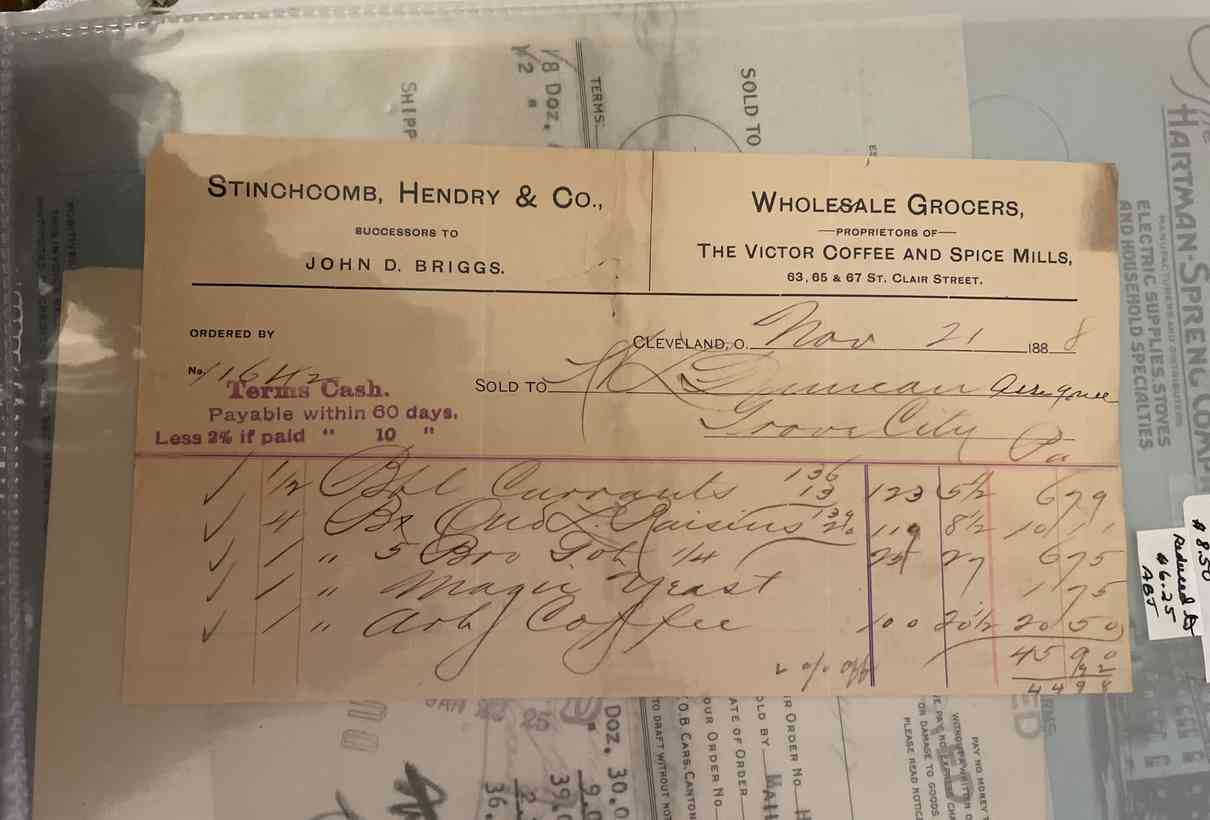 STINCHCOMB, HENDRY & CO.,
SUCCESSORS TO
JOHN D. BRIGGS.
WHOLESALE GROCERS,
PROPRIETORS OF
THE VICTOR COFFEE AND SPICE MILLS,
63, 65 & 67 ST. CLAIR STREET.
ORDERED BY
CLEVELAND, O. Nov 21 1888
No. 11642
SOLD TO
Grove City Pa
Terms Cash.
Payable within 60 days.
Less 2% if paid " 10 "
1/2 Bbl Currants 136 13 123 5 1/2 6 79
4 Bx Raisins 119 8 1/2 10 11
1 " 5 Bro 1/4 25 27 6 75
1 " Magic Yeast 1 75
1 " Coffee 100 20 1/2 20 50
45 90
2 % off 92
44 98
TERMS:
1/8 Doz.
1/2 "
SHIPP
SOLD TO
The
HARTMAN-SPRENG COMP
MANUFACTURERS AND DISTRIBUTORS
ELECTRIC SUPPLIES, STOVES
AND HOUSEHOLD SPECIALTIES
$8.50
Reduced to
$6.25
ABJ
25
DOZ. 30.0
9.0
39.0
36.
TO DRAFT WITHOUT NOT
F.O.B. CARS, CANTON
OUR ORDER No.
DATE OF ORDER
SOLD BY MAIL
R ORDER NO. H
OR DAMAGE TO GOODS
PLEASE READ NOTICE
PAY NO MONEY T